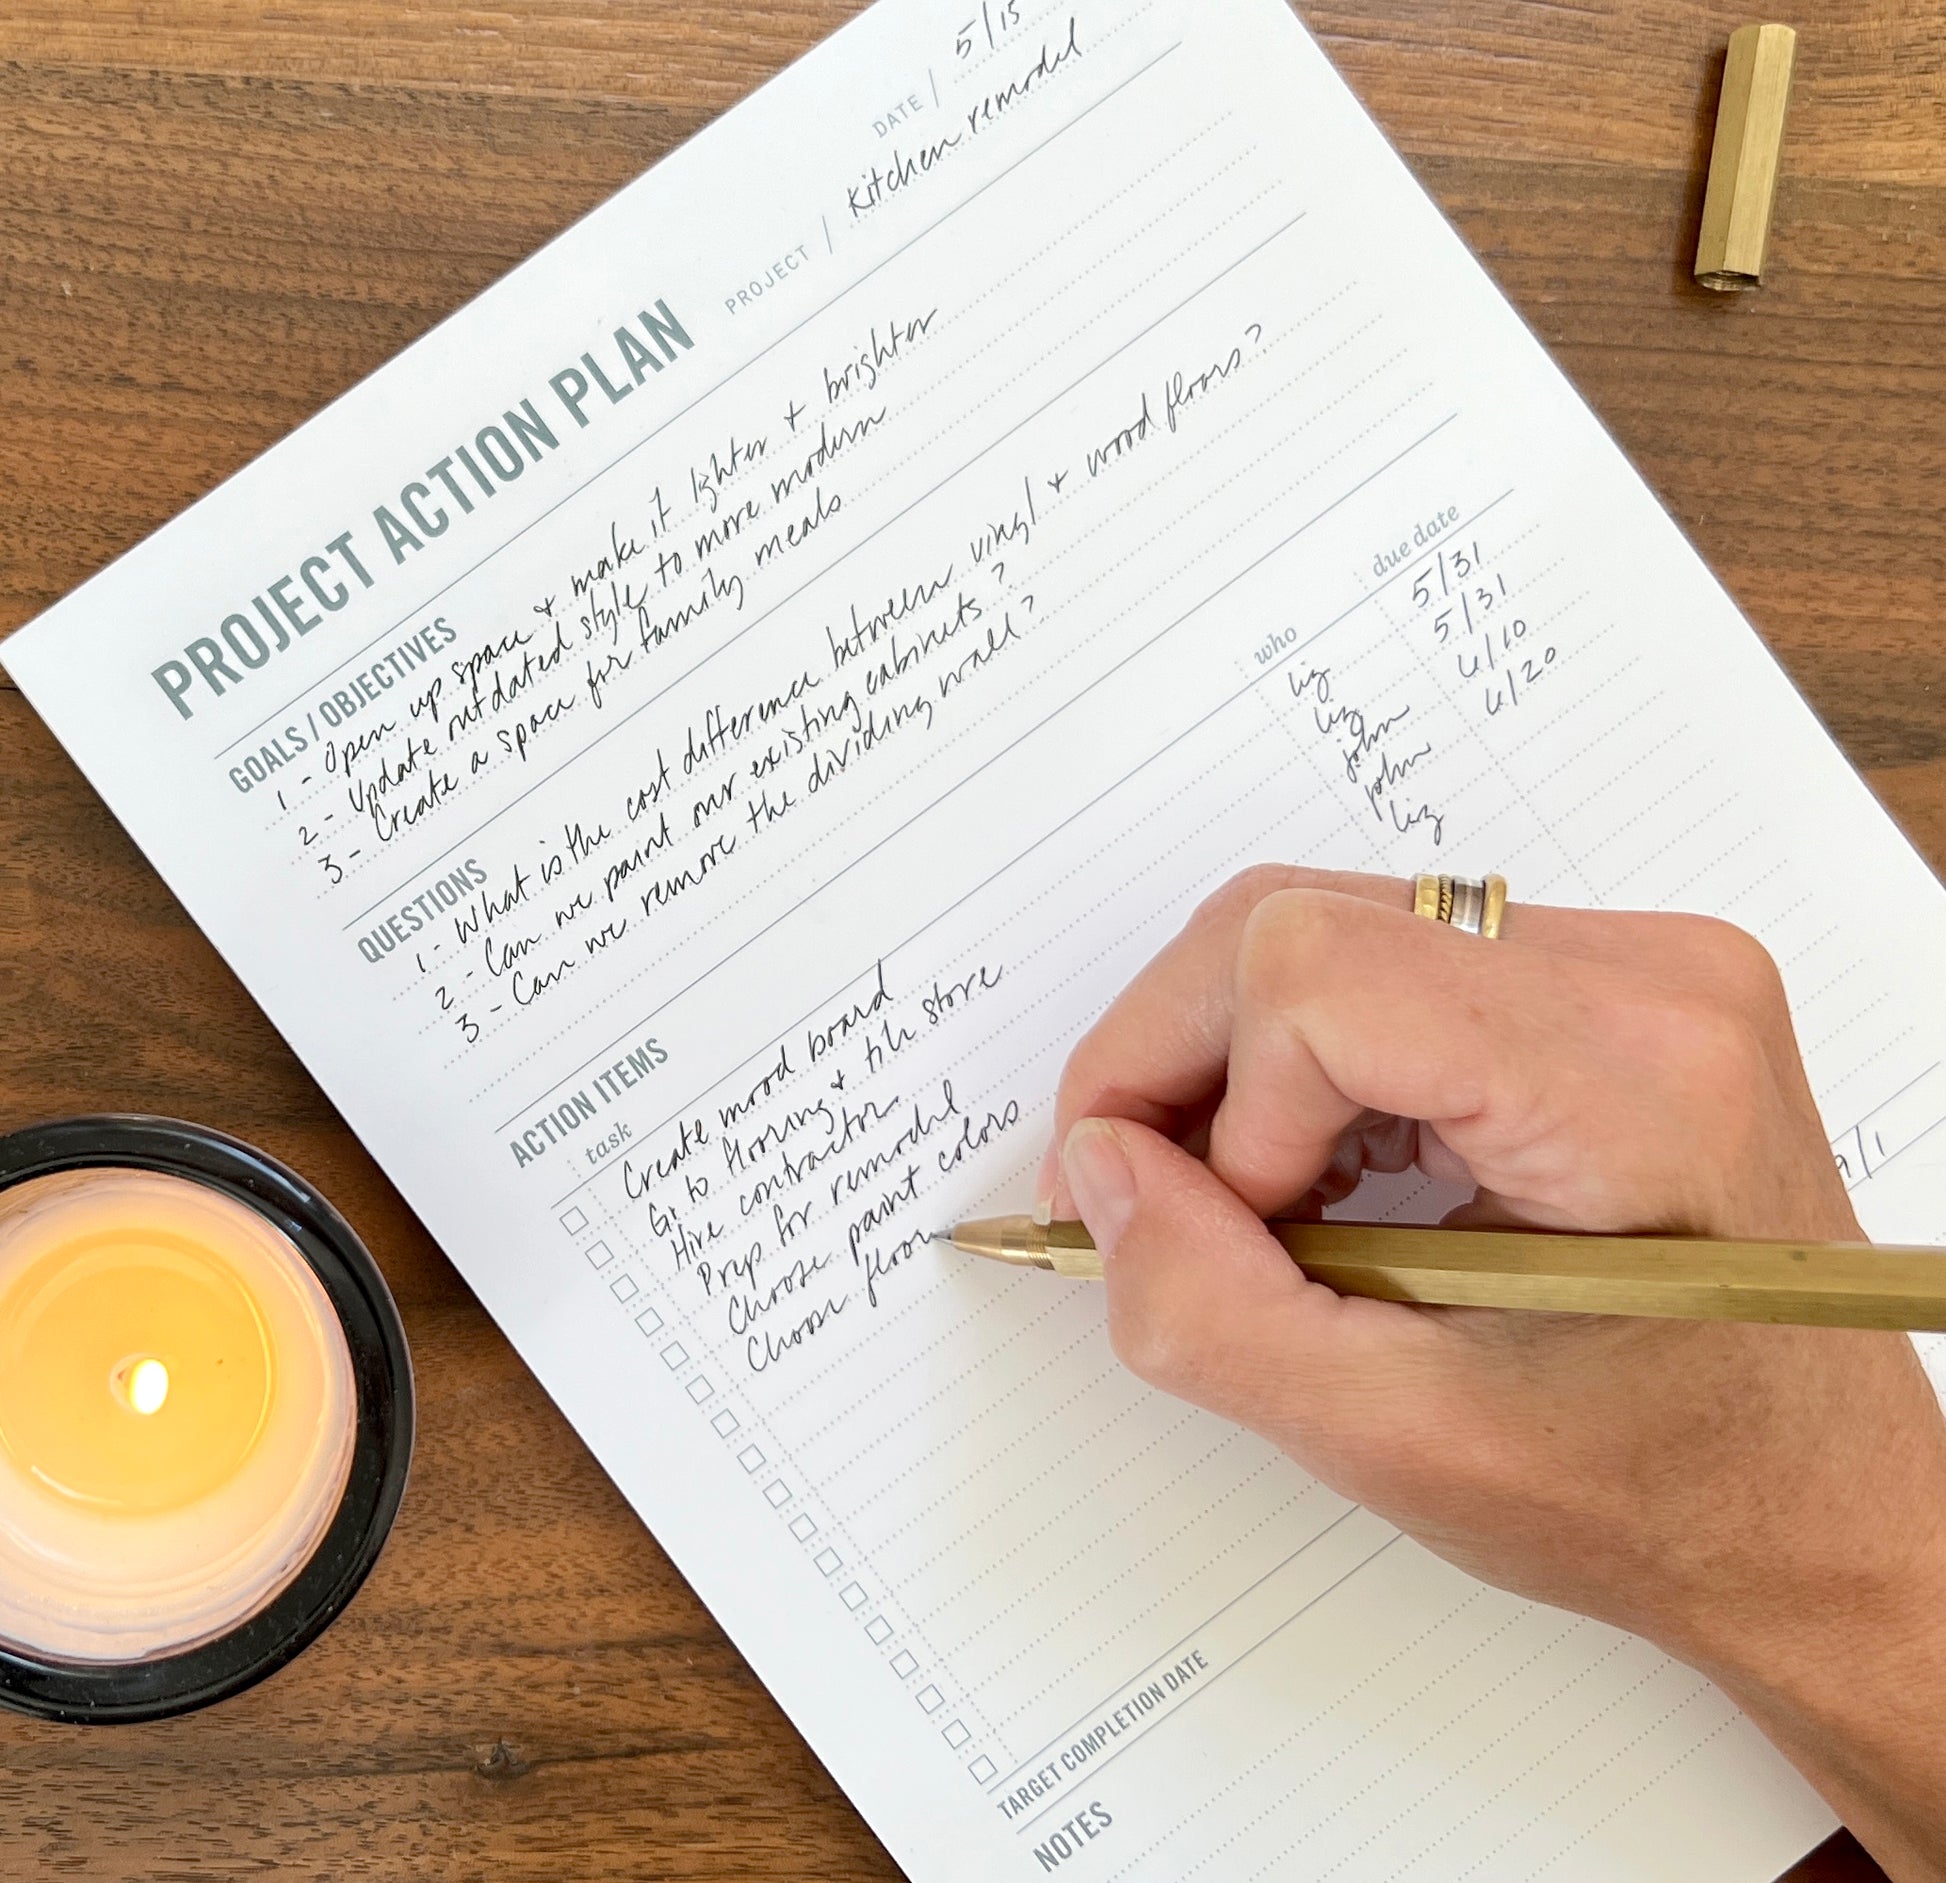 DATE / 5/15
PROJECT ACTION PLAN PROJECT / Kitchen remodel
GOALS / OBJECTIVES
1 - Open up space + make it lighter + brighter
2 - Update outdated style to more modern
3 - Create a space for family meals
QUESTIONS
1 - What is the cost difference between vinyl + wood floors?
2 - Can we paint our existing cabinets?
3 - Can we remove the dividing wall?
ACTION ITEMS
task who due date
Create mood board liz 5/31
Go to flooring + tile store liz 5/31
Hire contractor john 6/10
Prep for remodel john 6/20
Choose paint colors liz
Choose floor
TARGET COMPLETION DATE 9/1
NOTES